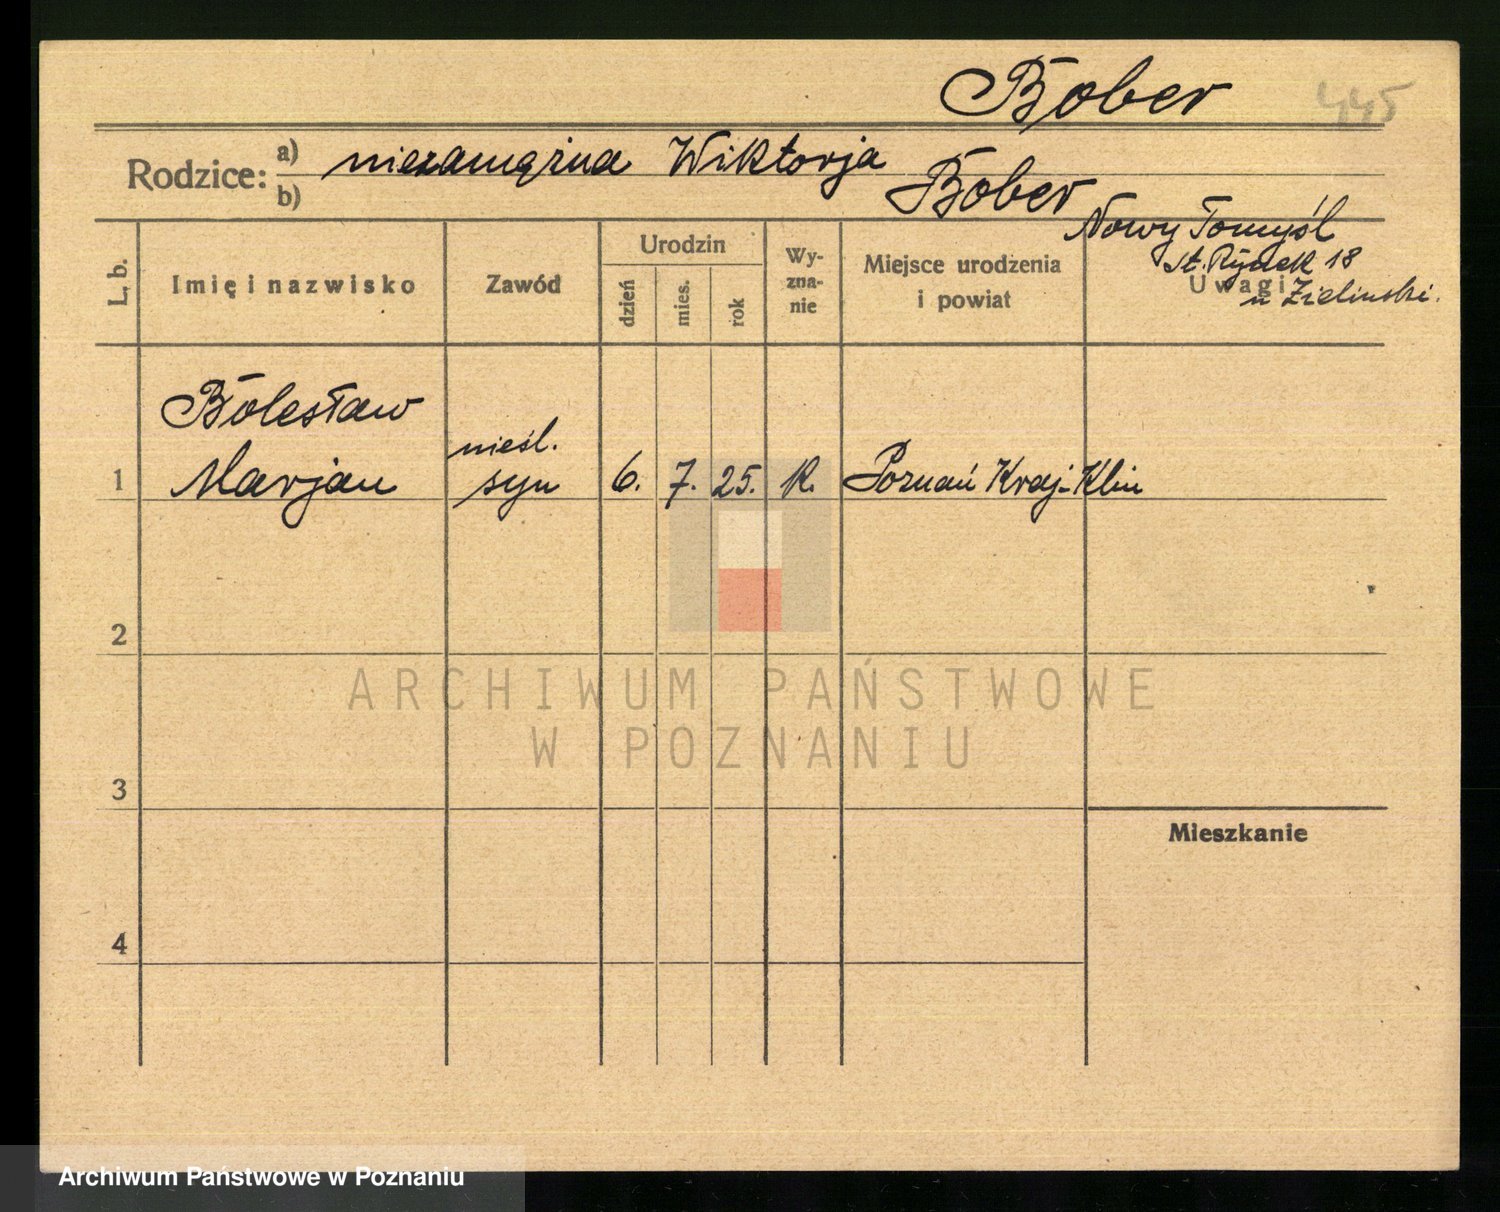 Bober 445
Rodzice: a) niezamężna Wiktorja
b) Bober
Nowy Tomyśl
st. Rynek 18
u Zielinski.
L. b. Imię i nazwisko Zawód Urodzin dzień mies. rok Wy-zna-nie Miejsce urodzenia i powiat Uwagi
Bolesław
nieśl.
1 Marjan syn 6. 7. 25. k. Poznań Kraj-Klin
2
ARCHIWUM PAŃSTWOWE
W POZNANIU
3
Mieszkanie
4
Archiwum Państwowe w Poznaniu